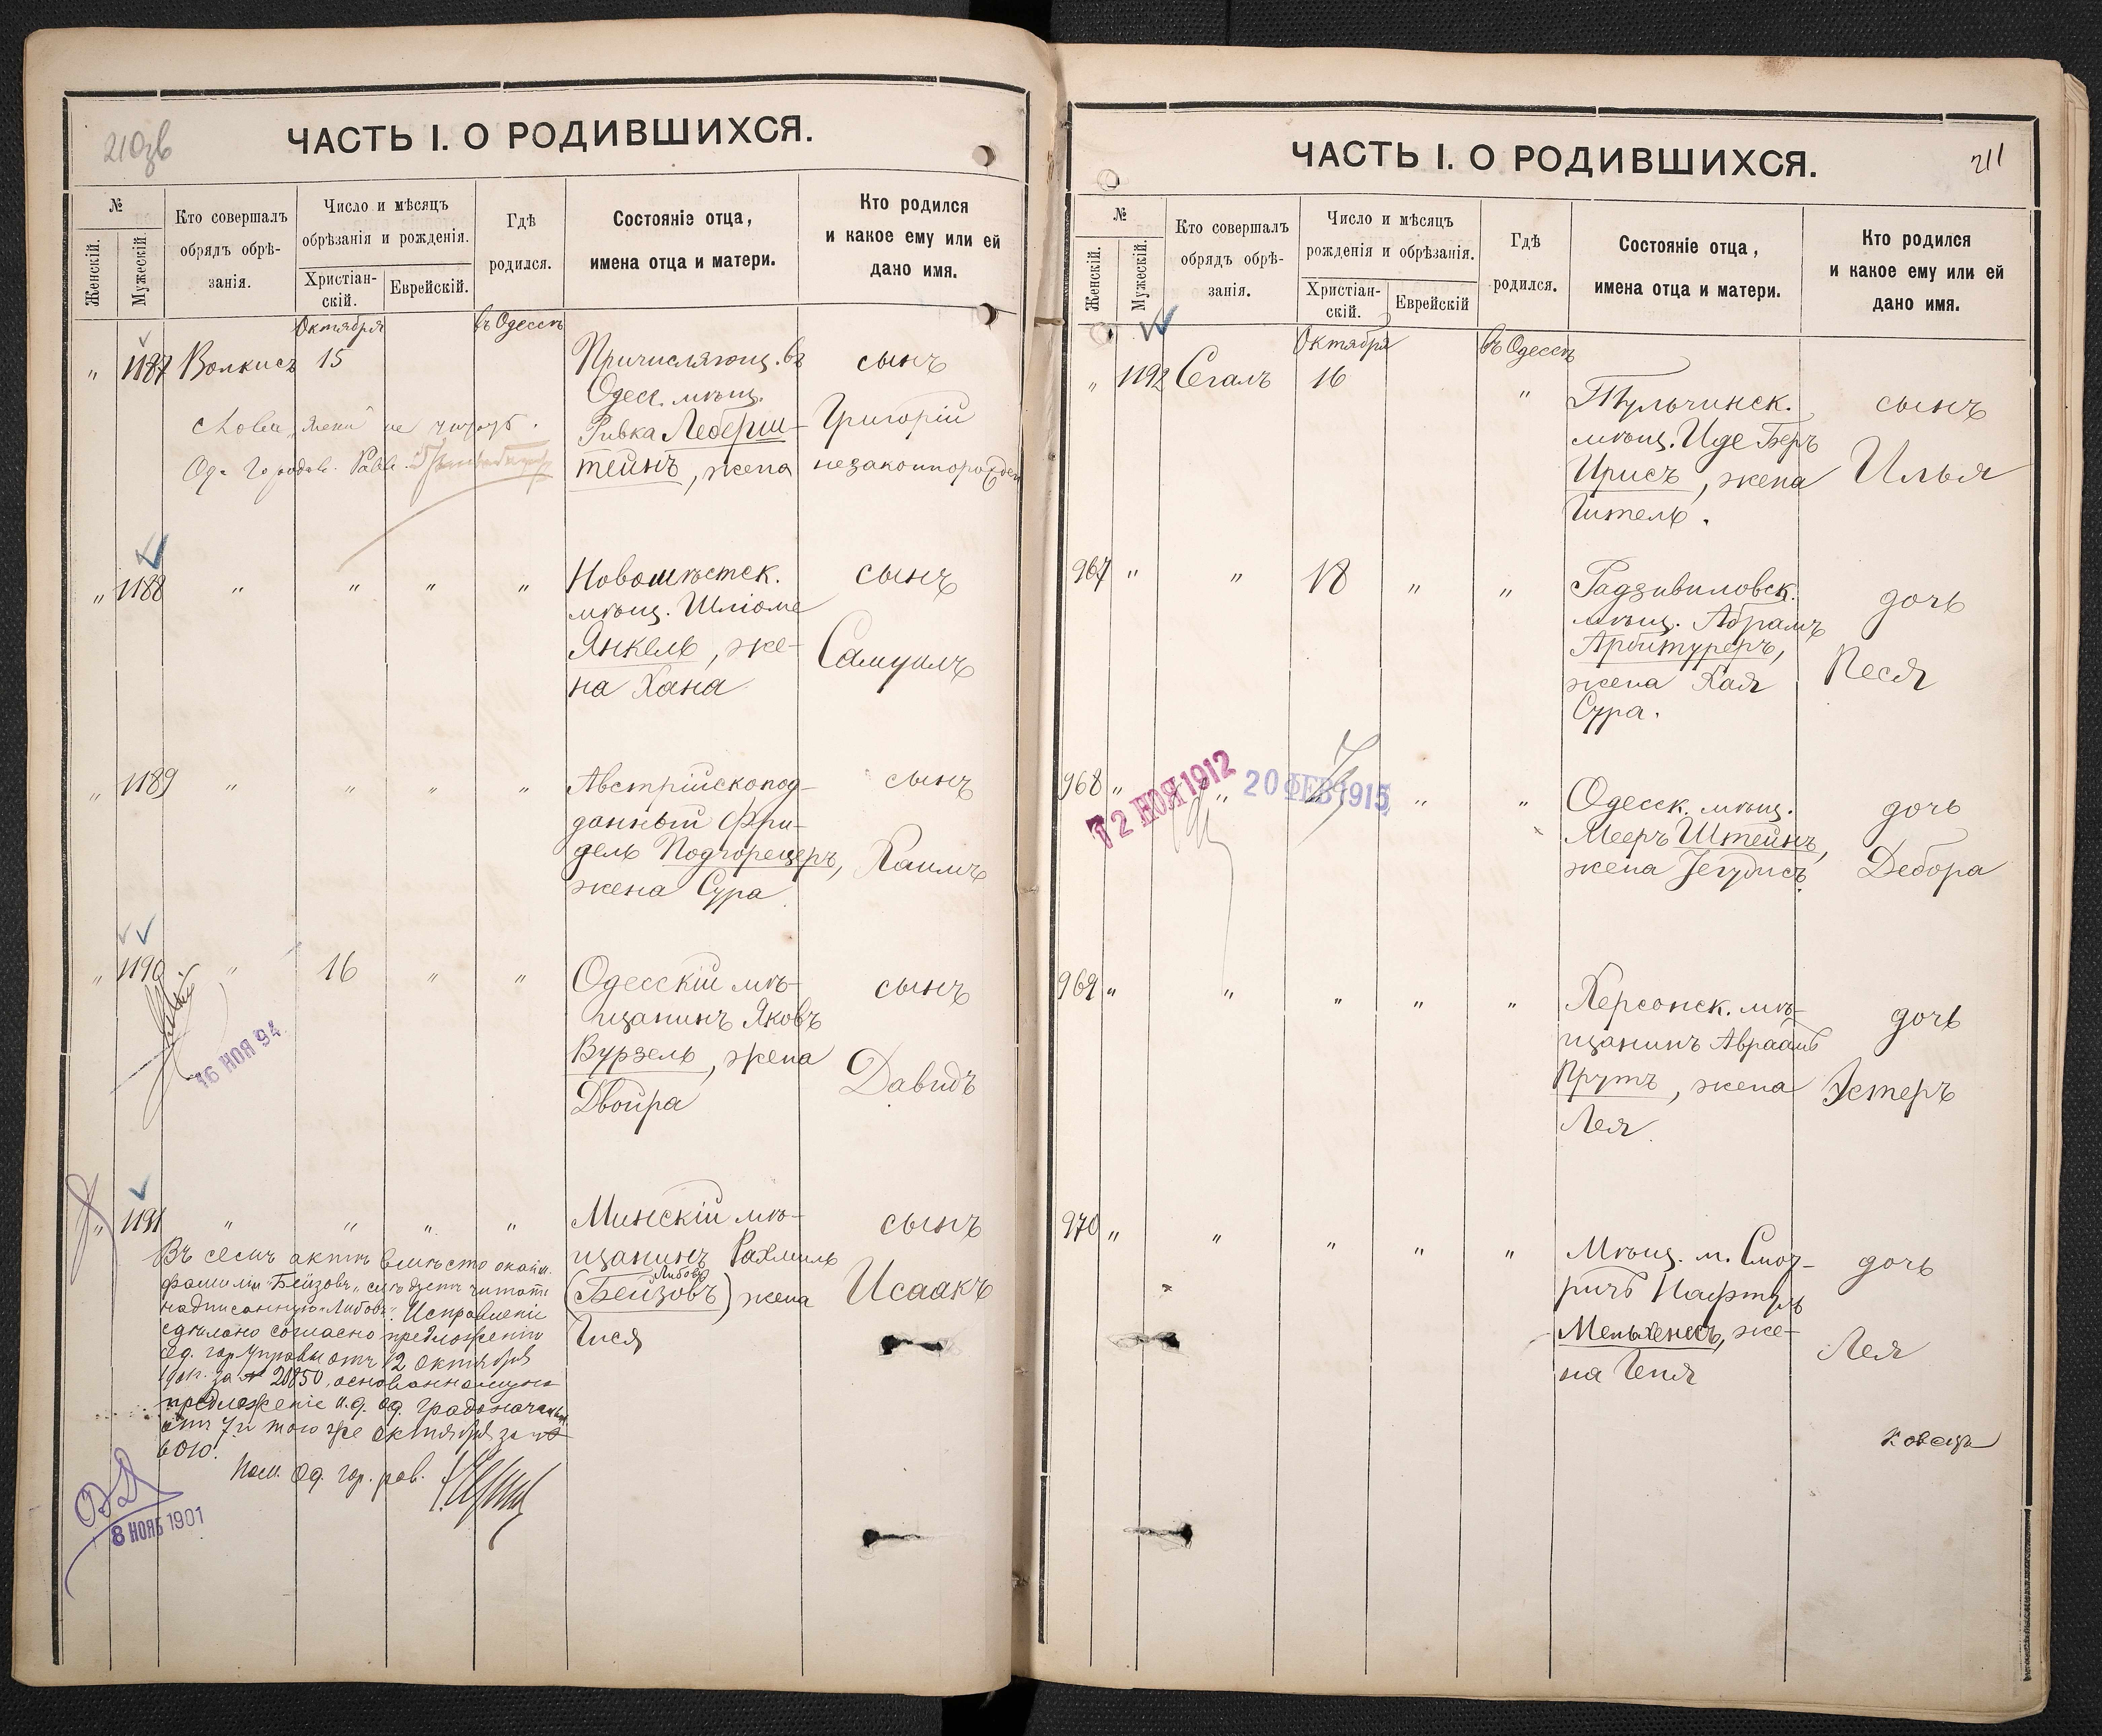 210зв
ЧАСТЬ I. О РОДИВШИХСЯ.
№
Женскій.
Мужескій.
Кто совершалъ
обрядъ обрѣ-
занія.
Число и мѣсяцъ
обрѣзанія и рожденія.
Христіан-
скій.
Еврейскій.
Гдѣ
родился.
Состояніе отца,
имена отца и матери.
Кто родился
и какое ему или ей
дано имя.
Октября
въ Одессѣ
„ 1187 Волкисъ 15 Причисляющ. въ сынъ
Одесс. мѣщ.
Ривка Леберш- Григорій
тейнъ, жена незаконнорожден
Слова „жена не читать.
Од. Городов. Равв.
„ 1188 „ „ „ „ Новомѣстск. сынъ
мѣщ. Шліоме
Янкель, же- Самуилъ
на Хана
„ 1189 „ „ „ „ Австрійскопод- сынъ
данный Фри-
дель Подгорецеръ, Хаимъ
жена Сура
„ 1190 „ 16 „ „ Одесскій мѣ- сынъ
щанинъ Яковъ
Вурзель, жена Давидъ
Двойра
16 НОЯ 94
„ 1191 „ „ „ „ Минскій мѣ- сынъ
щанинъ Рахмиль
Либовъ
(Бейзовъ) жена Исаакъ
Гися
Въ семъ актѣ вмѣсто окайм.
фамиліи „Бейзовъ„ слѣдуетъ читать
надписанную „Либовъ„. Исправленіе
сдѣлано согласно предложенію
Од. гор. Управы отъ 12 октября
за № 20850, основанному на
предложеніе и. д. Од. градоначальн.
отъ 7го того же октября за №
6010.
Пом. Од. гор. рав.
8 НОЯБ 1901
ЧАСТЬ I. О РОДИВШИХСЯ.
211
№
Женскій.
Мужескій.
Кто совершалъ
обрядъ обрѣ-
занія.
Число и мѣсяцъ
рожденія и обрѣзанія.
Христіан-
скій.
Еврейскій
Гдѣ
родился.
Состояніе отца,
имена отца и матери.
Кто родился
и какое ему или ей
дано имя.
Октября
въ Одессѣ
„ 1192 Сегалъ 16 „ Тульчинск. сынъ
мѣщ. Иде Беръ
Ирисъ, жена Илья
Гитель.
967 „ „ 18 „ „ Радзивиловск. дочь
мѣщ. Абрамъ
Арбитуреръ, Песя
жена Хая
Сура.
968 „ „ „ „ Одесск. мѣщ. дочь
Мееръ Штейнъ,
жена Іегудисъ. Дебора
12 НОЯ 1912
20 ФЕВ 1915
969 „ „ „ „ „ Херсонск. мѣ- дочь
щанинъ Авраамъ
Прутъ, жена Эстеръ
Лея.
970 „ „ „ „ „ Мѣщ. м. Смот- дочь
ричъ Нафтулъ
же- Лея
на Геня